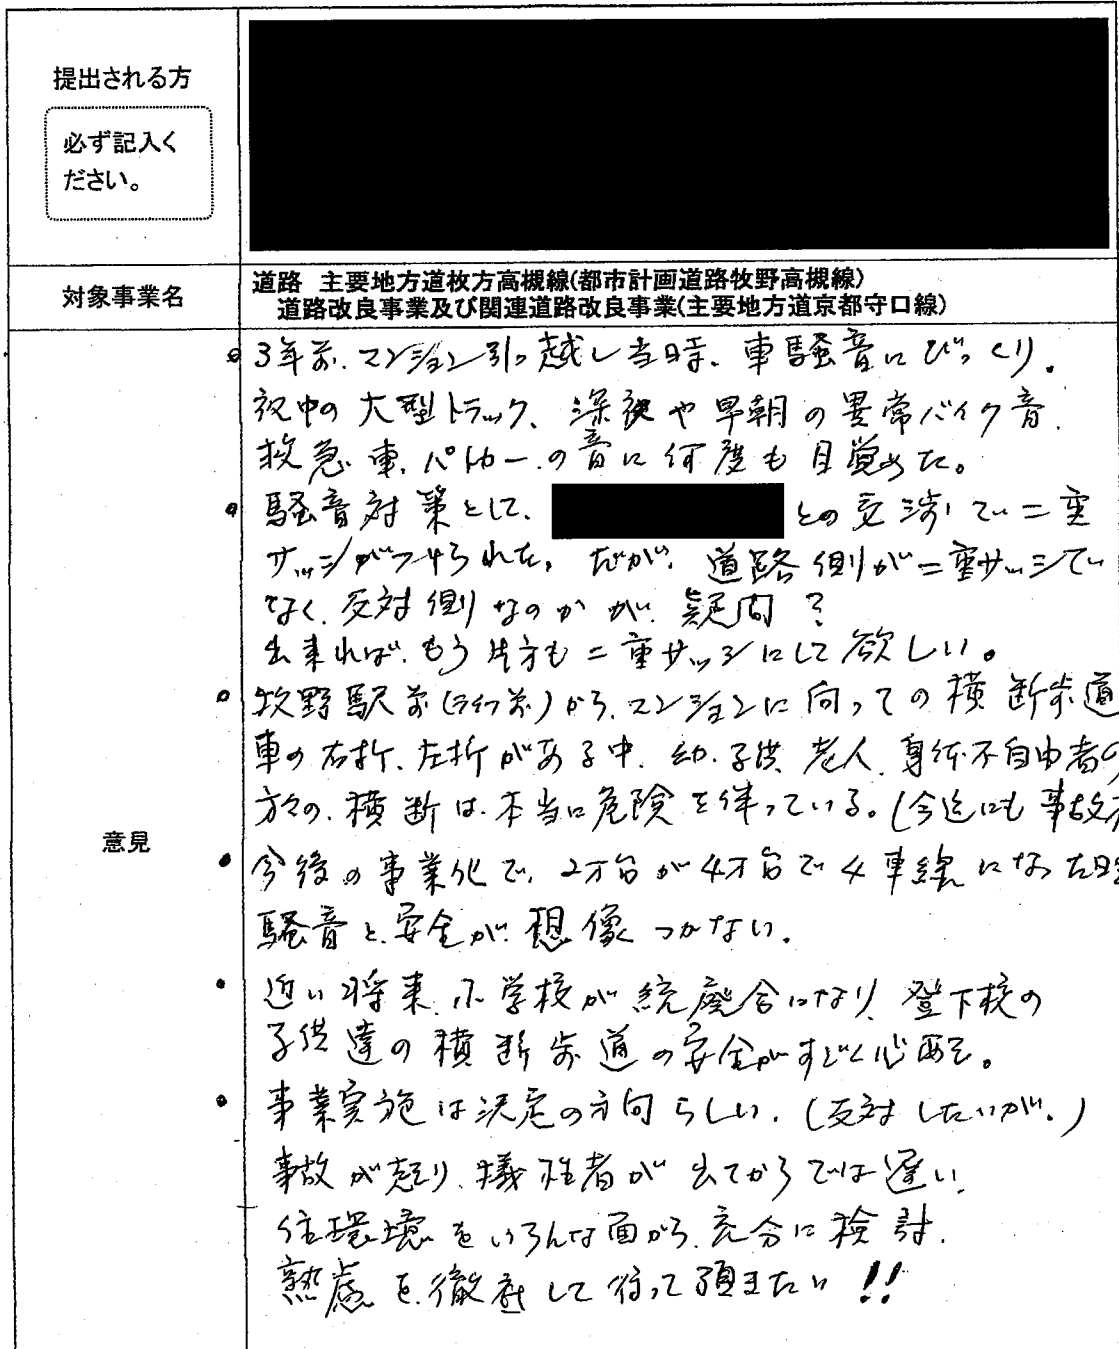 提出される方
必ず記入く
ださい。
対象事業名
道路 主要地方道枚方高槻線(都市計画道路牧野高槻線)
道路改良事業及び関連道路改良事業(主要地方道京都守口線)
意見
• 3年前、マンション引っ越し当時、車騒音にびっくり。
夜中の大型トラック、深夜や早朝の異常バイク音、
救急車、パトカーの音に何度も目覚めた。
• 騒音対策として、
との交渉で二重
サッシがつけられた。だが、道路側が二重サッシで
なく、反対側なのかが、疑問?
出来れば、もう片方も二重サッシにして欲しい。
• 牧野駅前(ライフ前)から、マンションに向っての横断歩道
車の右折、左折がある中、幼、子供、老人、身体不自由者の
方々の、横断は、本当に危険を伴っている。(今迄にも事故
• 今後の事業化で、2万台が4万台で4車線になった
騒音と、安全が、想像つかない。
• 近い将来、小学校が統廃合になり、登下校の
子供達の横断歩道の安全がすごく心配。
• 事業実施は決定の方向らしい、(反対したいが、)
事故が起り、犠牲者が出てからでは遅い、
住環境をいろんな面から、充分に検討、
熟慮を、徹底して行って頂きたい!!